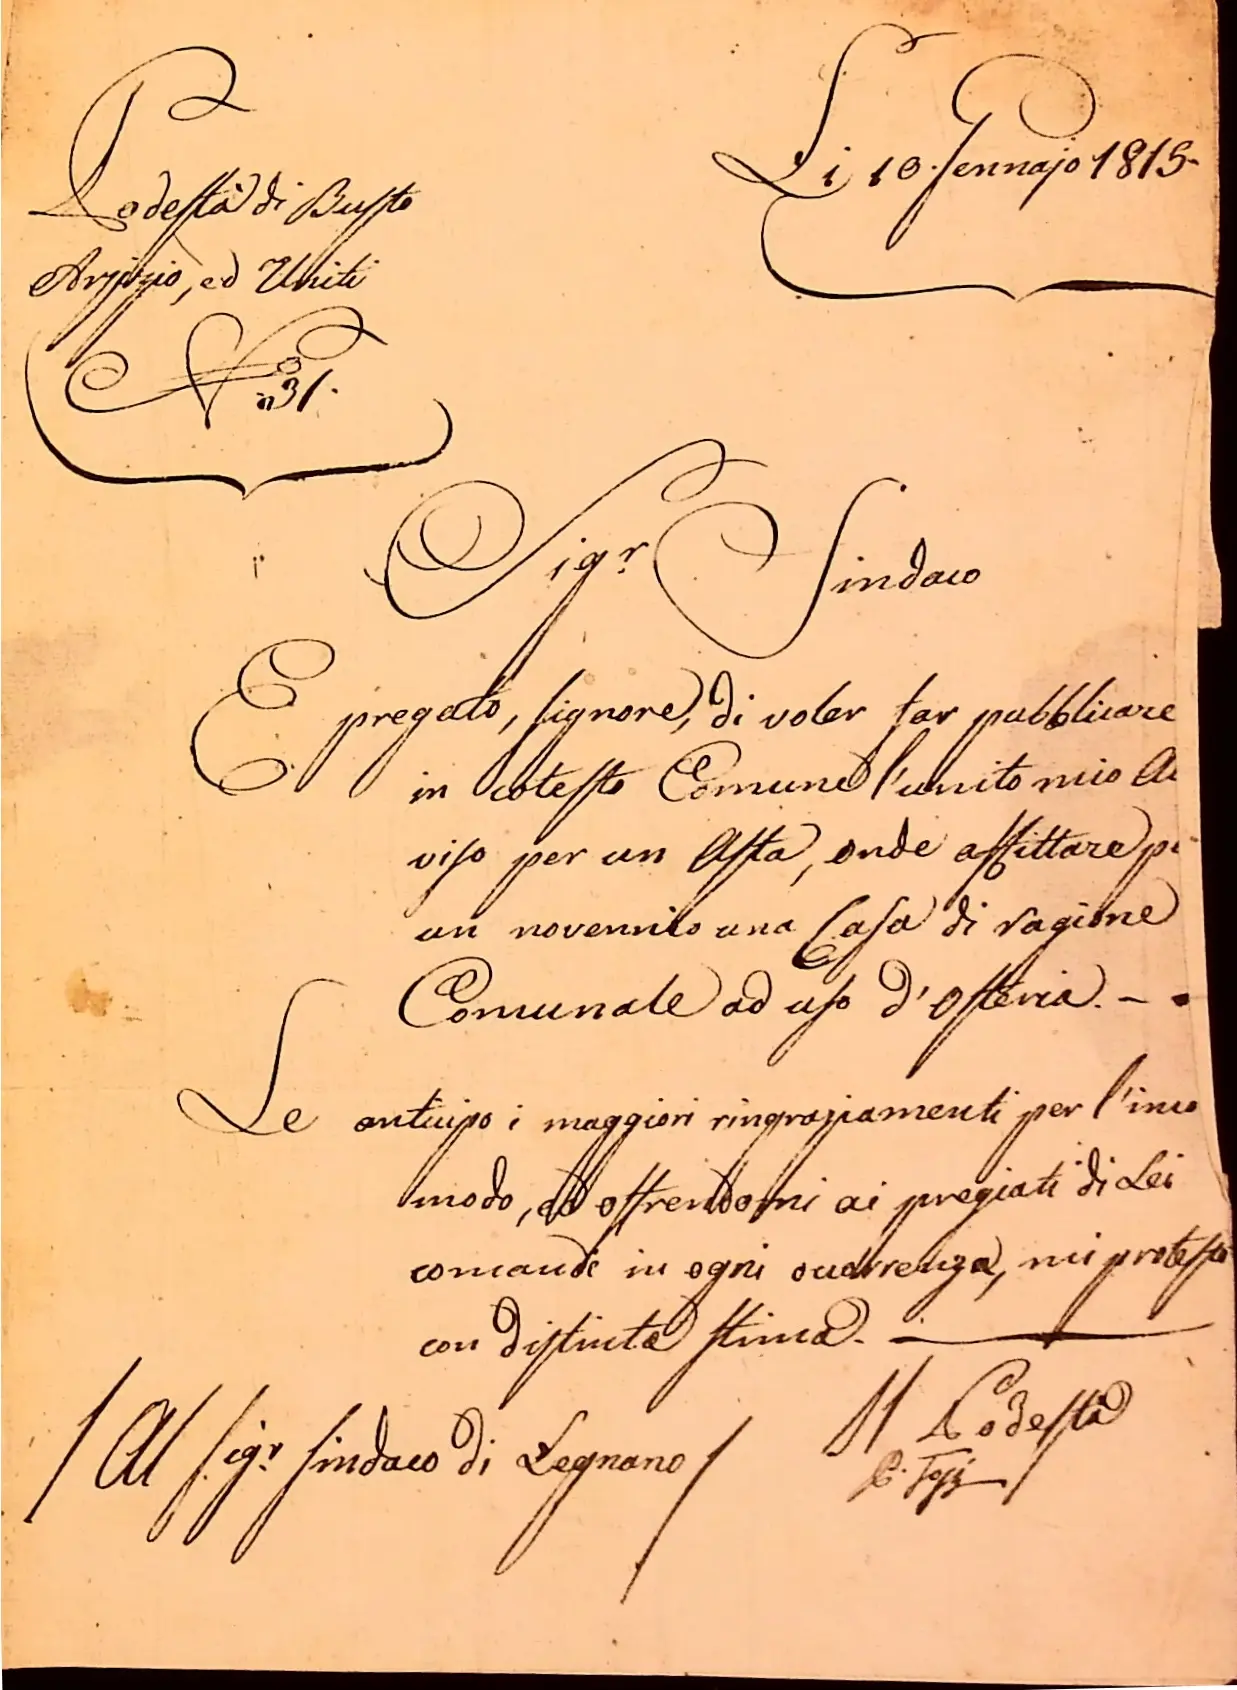 Podestà di Busto
Arsizio, ed Uniti
N° 31.
Li 10 Gennajo 1815
Sigr Sindaco
E pregato, Signore, di voler far pubblicare
in cotesto Comune l'unito mio A
viso per un Asta, onde affittare p
un novennio una Casa di ragione
Comunale ad uso d'Osteria. -
Le anticipo i maggiori ringraziamenti per l'inco
modo, ed offrendomi ai pregiati di Lei
comandi in ogni occorrenza, mi protesto
con distinta stima.
Il Podestà
/ Al Sigr Sindaco di Legnano /